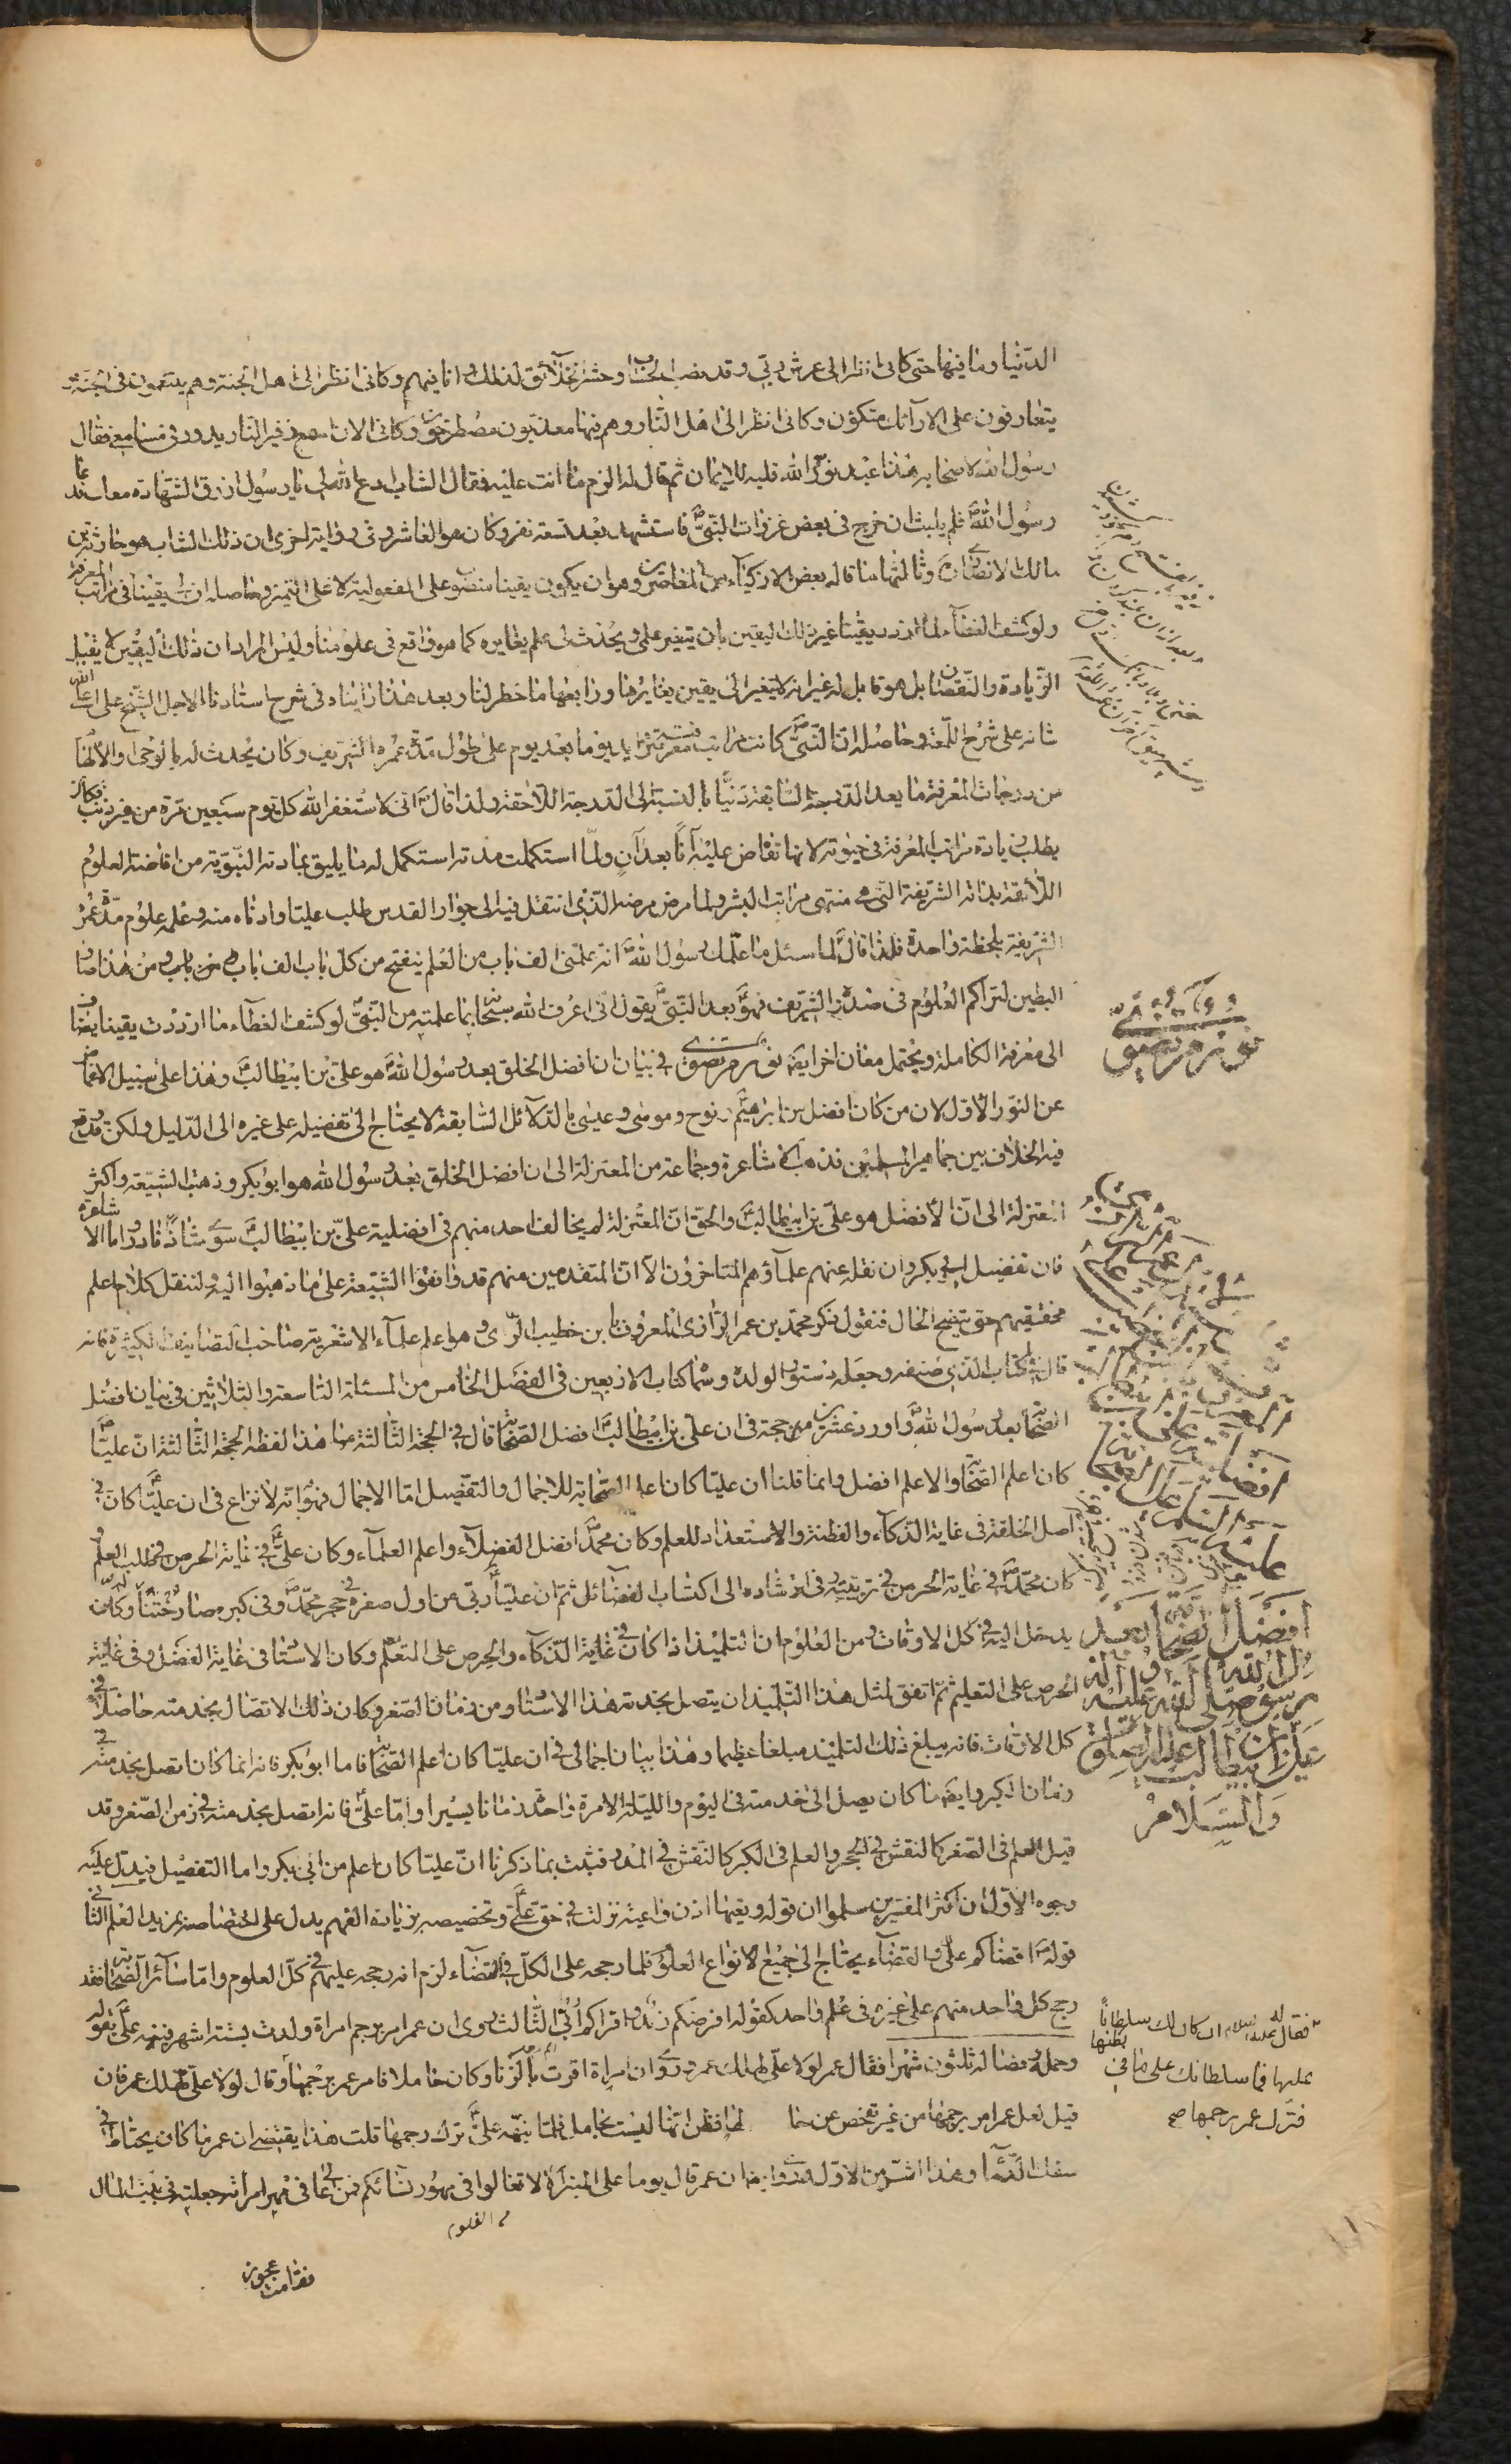 الدّنيا وما فيها حتى كانى انظر الى عرش ربّى وقد نصب للحساب وحشر الخلآئق لذلك وانا فيهم وكانى انظر الى اهل الجنة وهم يتنعمون فى الجنة
يتعارفون على الارآئك متكؤن وكانى انظر الى اهل النّار وهم فيها معذبون مصطرخون وكانى الان اسمع زفير النار يدور فى مسامعى فقال
رسول الله لاصحابه هذا عبد نوّر الله قلبه للايمان ثم قال له الزم ما انت عليه فقال الشاب ادع الله لى يا رسول ارزق الشهادة معك فدعا
رسول الله فلم يلبث ان خرج فى بعض غزوات النبىّ فاستشهد بعد تسعة نفر وكان هو العاشر وفى رواية اخرى ان ذلك الشاب هو حارثة بن
مالك الانصارى وثالثها ما قاله بعض الاذكيآء من المعاصرين وهو ان يكون يقينا منصوبا على المفعولية لا على التميز وحاصله ان لى يقينا فى مراتب المعرفة
ولو كشف الغطآء لما ازدد يقينا غير ذلك اليقين بان يتغير علمى ويحدث لى علم يغايره كما هو واقع فى علومنا وليس المراد ان ذلك اليقين لا يقبل
الزّيادة والنّقصان بل هو قابل له غير انه لا يتغير الى يقين يغايرها ورابعها ما خطر لنا وبعد هذا رايناه فى شرح استادنا الاجل الشيخ على اعلى الله
شانه على شرح اللّمعة وحاصله ان النّبىّ كانت مراتب معرفته تتزايد يوما بعد يوم على طول مدّة عمره الشريف وكان يحدث له بالوحى والالهام
من درجات المعرفة ما يعد الدّرجة السّابقة دنيّا بالنسبة الى الدّرجة اللّاحقة ولذا قال انى لاستغفر الله كل يوم سبعين مرة من غير ذنب فكان
يطلب زيادة مراتب المعرفة فى حيوته لانها تفاض عليه آنا بعد آن ولمّا استكملت مدته استكمل له ما يليق بمادته النّبويّة من افاضة العلوم
اللّآئقة بذاته الشريفة التى هى منتهى مراتب البشر ولما مرض مرضه الذى انتقل فيه الى جوار القدس طلب عليّا وادناه منه وعلمه علوم مدّة عمره
الشريفة بلحظة واحدة فلذا قال لما سئل ما علّمك رسول الله انه علمنى الف باب من العلم ينفتح من كل باب الف باب ومن هذا صار
البطين لتراكم العلوم فى صدره الشريف فهو بعد النّبىّ يقول انّى اعرف الله سبحانه بما علمتنيه من النّبىّ لو كشف الغطآء ما ازددت يقينا ايضا
الى معرفة الكاملة ويحتمل معان اخر ايضا نور مرتضوى فى بيان ان افضل الخلق بعد رسول الله هو علىّ بن ابيطالب وهذا على سبيل الاغماض
عن النّور الاوّل لان من كان افضل من ابرهيم ونوح وموسى وعيسى بالدّلآئل السّابقة لا يحتاج الى تفضيله على غيره الى الدّليل ولكن قد وقع
فيه الخلاف بين جماهير المسلمين فذهب الاشاعرة وجماعة من المعتزلة الى ان افضل الخلق بعد رسول الله هو ابو بكر وذهب الشيعة واكثر
المعتزلة الى انّ الافضل هو علىّ بن ابيطالب والحق انّ المعتزلة لم يخالف احد منهم فى افضلية علىّ بن ابيطالب سوى شاذّ نادر واما الاشاعرة
فان تفضيل ابى بكر وان نقله عنهم علمآؤهم المتاخرون الّا ان المتقدمين منهم قد وافقوا الشيعة على ما ذهبوا اليه ولننقل كلام اعلم
محققيهم حتى يتضح الحال فنقول ذكر محمّد بن عمر الرّازى المعروف بابن خطيب الرّى وهو اعلم علمآء الاشعرية صاحب التّصانيف الكثيرة فانه
قال فى الكتاب الذى صنفه وجعله دستورا لولده وسماه كتاب الاربعين فى الفصل الخامس من المسئلة التاسعة والثلاثين فى بيان افضل
الصّحابة بعد رسول الله واورد عشرين حجة فى ان علىّ بن ابيطالب افضل الصّحابة قال فى الحجة الثّالثة منها هذا لفظه الحجة الثّالثة انّ عليّا
كان اعلم الصّحابة والاعلم افضل وانما قلنا ان عليّا كان اعلم الصّحابة للاجمال والتّفصيل امّا الاجمال فهو انه لا نزاع فى ان عليّا كان فى
اصل الخلقة فى غاية الذّكآء والفطنة والاستعداد للعلم وكان محمّد افضل الفضلآء واعلم العلمآء وكان علىّ فى غاية الحرص فى طلب العلم و
كان محمّد فى غاية الحرص فى تربيته وفى ارشاده الى اكتساب الفضآئل ثمّ ان عليّا ربّى من اول صغره فى حجر محمّد وفى كبره صار ختنا له وكان
يدخل اليه فى كل الاوقات ومن المعلوم ان التلميذ اذا كان فى غاية الذّكآء والحرص على المتعلم وكان الاستاد فى غاية الفضل وفى غاية
الحرص على التعليم ثم اتفق لمثل هذا التّلميذ ان يتصل بخدمة هذا الاستاد من زمان الصغر وكان ذلك الاتصال بخدمته حاصلا فى
كل الاوقات فانه يبلغ ذلك التلميذ مبلغا عظيما وهذا بيان اجمالى فى ان عليّا كان اعلم الصّحابة فاما ابو بكر فانه انما كان اتصل بخدمته فى
زمان الكبر وايضا ما كان يصل الى خدمته فى اليوم والليلة الا مرة واحدة زمانا يسيرا وامّا علىّ فانه اتصل بخدمته فى زمن الصّغر وقد
قيل العلم فى الصّغر كالنقش فى الحجر والعلم فى الكبر كالنّقش فى المدر فثبت بما ذكرنا انّ عليّا كان اعلم من ابى بكر واما التفصيل فيدل عليه
وجوه الاوّل ان اكثر المفسرين سلموا ان قوله وتعيها اذن واعية نزلت فى حق علىّ وتخصيصه بزيادة الفهم يدل على اختصاصه بمزيد العلم الثانى
قوله اقضاكم علىّ والقضآء يحتاج الى جميع الانواع العلوم فلما رجحه على الكلّ فى القضآء لزم انه رجحه عليهم فى كلّ العلوم وامّا سآئر الصّحابة فقد
رجح كل واحد منهم على غيره فى علم واحد كقوله افرضكم زيد واقراكم اُبىّ الثّالث روى ان عمر امر برجم امراة ولدت بستة اشهر فنبّهه علىّ بقوله
وحمله وفصاله ثلثون شهرا فقال عمر لولا علىّ لهلك عمر وروى ان امراة اقرت بالزّنا وكان حاملا فامر عمر برجمها وقال لولا علىّ لهلك عمر فان
قيل لعل عمر امر برجمها من غير تفحص عن حالها فظن انّها ليست بحامل فلمّا نبّهه علىّ ترك رجمها قلت هذا يقتضى ان عمر ما كان يحتاط فى
سفك الدّمآء وهذا اشرّ من الاوّل وروى ايضا ان عمر قال يوما على المنبر لا تغالوا فى مهور نسآئكم فمن غالى فى مهر امراته جعلته فى بيت المال
فقامت عجوز
نور مرتضوى
افضل الصّحابة بعد
رسول الله صلى الله عليه وآله
علىّ بن ابيطالب عليه الصلوة
والسّلام
فقال له عليه السلام ان كان لك سلطانا
عليها فما سلطانك على ما فى بطنها
فترك عمر رجمها صح